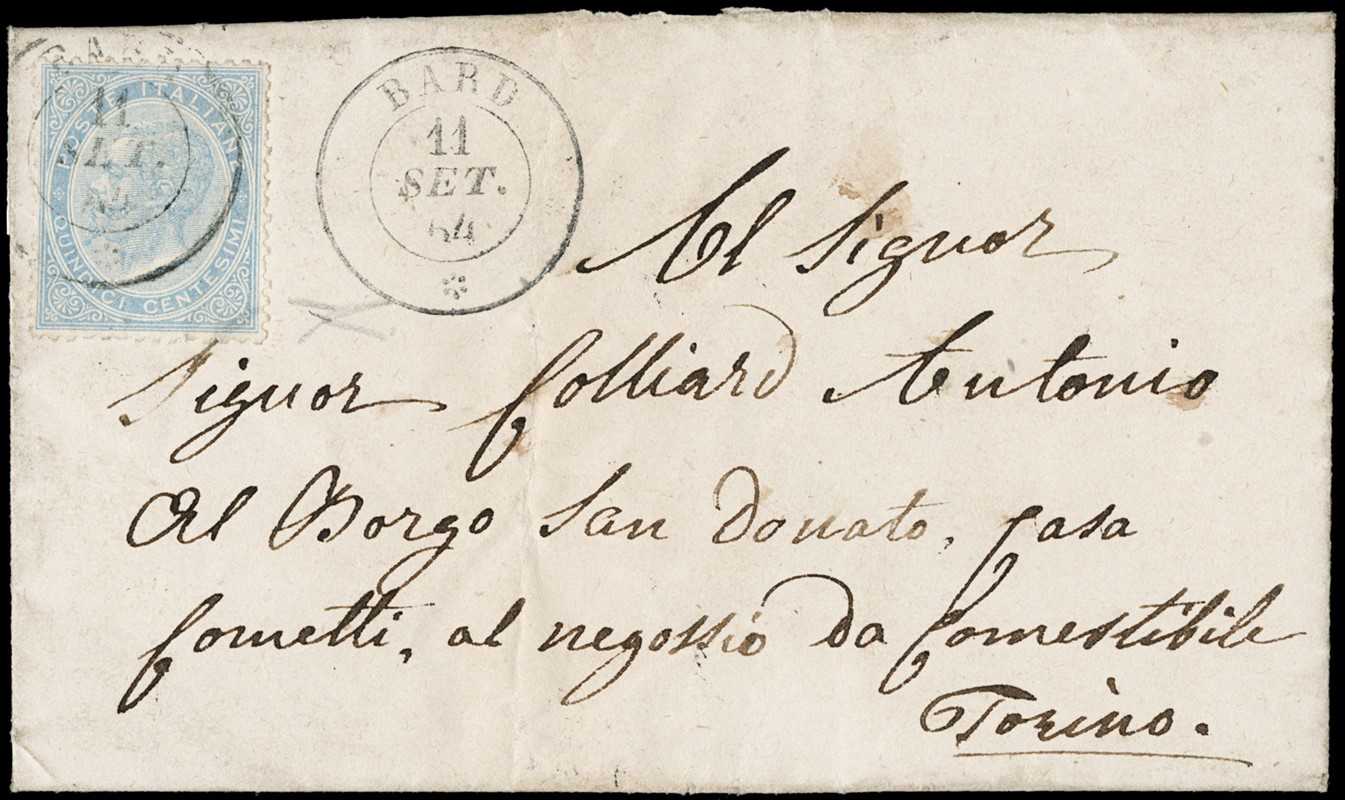 POSTE ITALIANE
QUINDICI CENTESIMI
11
BARD
11
SET.
64
Al Signor
Signor Colliard Antonio
Al Borgo San Donato, Casa
Cometti, al negossio da Comestibile
Torino.